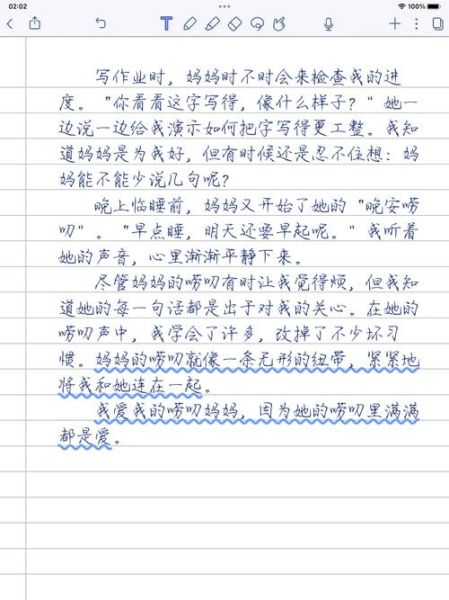 02:02
100%
写作业时，妈妈时不时会来检查我的进
度。“你看看这字写得，像什么样子？”她一
边说一边给我演示如何把字写得更工整。我知
道妈妈是为我好，但有时候还是忍不住想：妈
妈能不能少说几句呢？
晚上临睡前，妈妈又开始了她的“晚安唠
叨”。“早点睡，明天还要早起呢。”我听着
她的声音，心里渐渐平静下来。
尽管妈妈的唠叨有时让我觉得烦，但我知
道她的每一句话都是出于对我的关心。在她的
唠叨声中，我学会了许多，改掉了不少坏习
惯。妈妈的唠叨就像一条无形的纽带，紧紧地
将我和她连在一起。
我爱我的唠叨妈妈，因为她的唠叨里满满
都是爱。